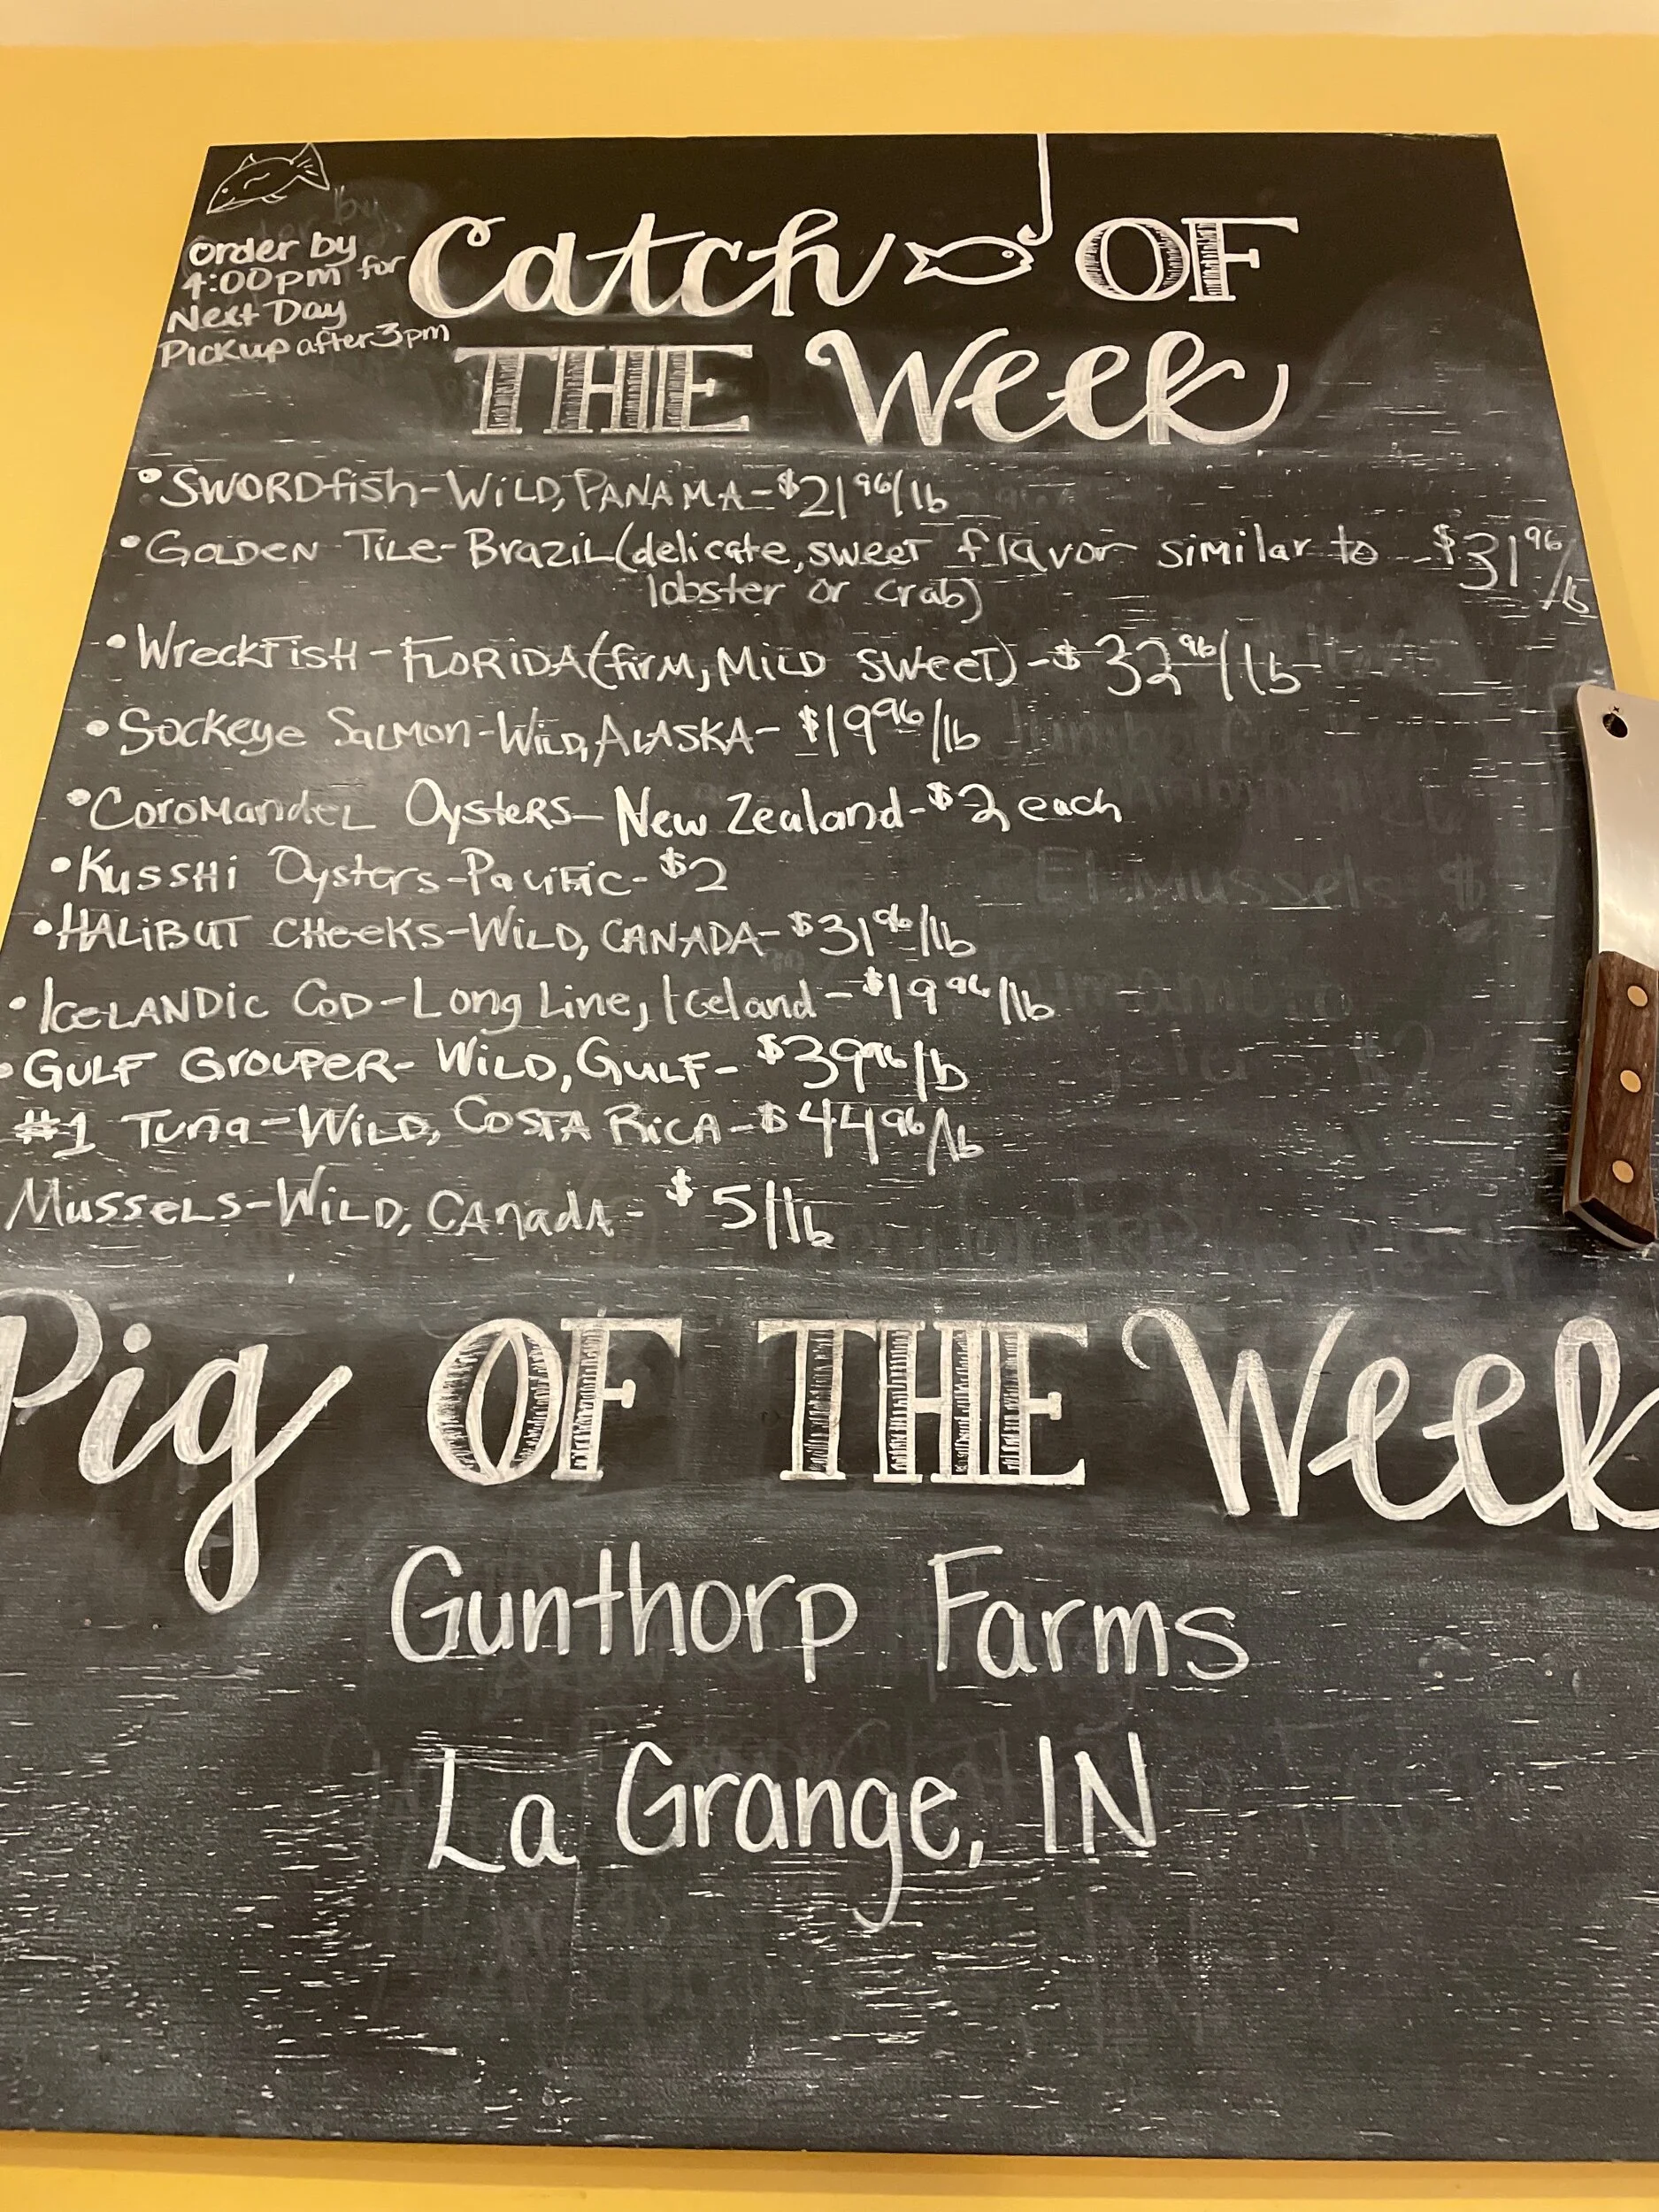 Order by
4:00pm for
Next Day
Pickup after 3pm
Catch OF
THE Week
• SWORDfish-WiLD, PANAMA-$21 96/lb
• GOLDEN Tile-Brazil (delicate, sweet flavor similar to -$31 96/lb
lobster or crab)
• WreckFish-FLORIDA (firm, Mild sweet)-$32 96/lb
• Sockeye Salmon-Wild, ALASKA-$19 96/lb
• Coromandel Oysters-New Zealand-$2 each
• Kusshi Oysters-Pacific-$2
• HALiBUT CHeeKs-Wild, CANADA-$31 96/lb
• IceLANDic Cod-Long Line, Iceland-$19 96/lb
• GULF GrouPeR-Wild, GULF-$39 96/lb
#1 Tuna-WiLD, COSTA RicA-$44 96/lb
Mussels-Wild, Canada-$5/lb
Pig OF THE Week
Gunthorp Farms
La Grange, IN